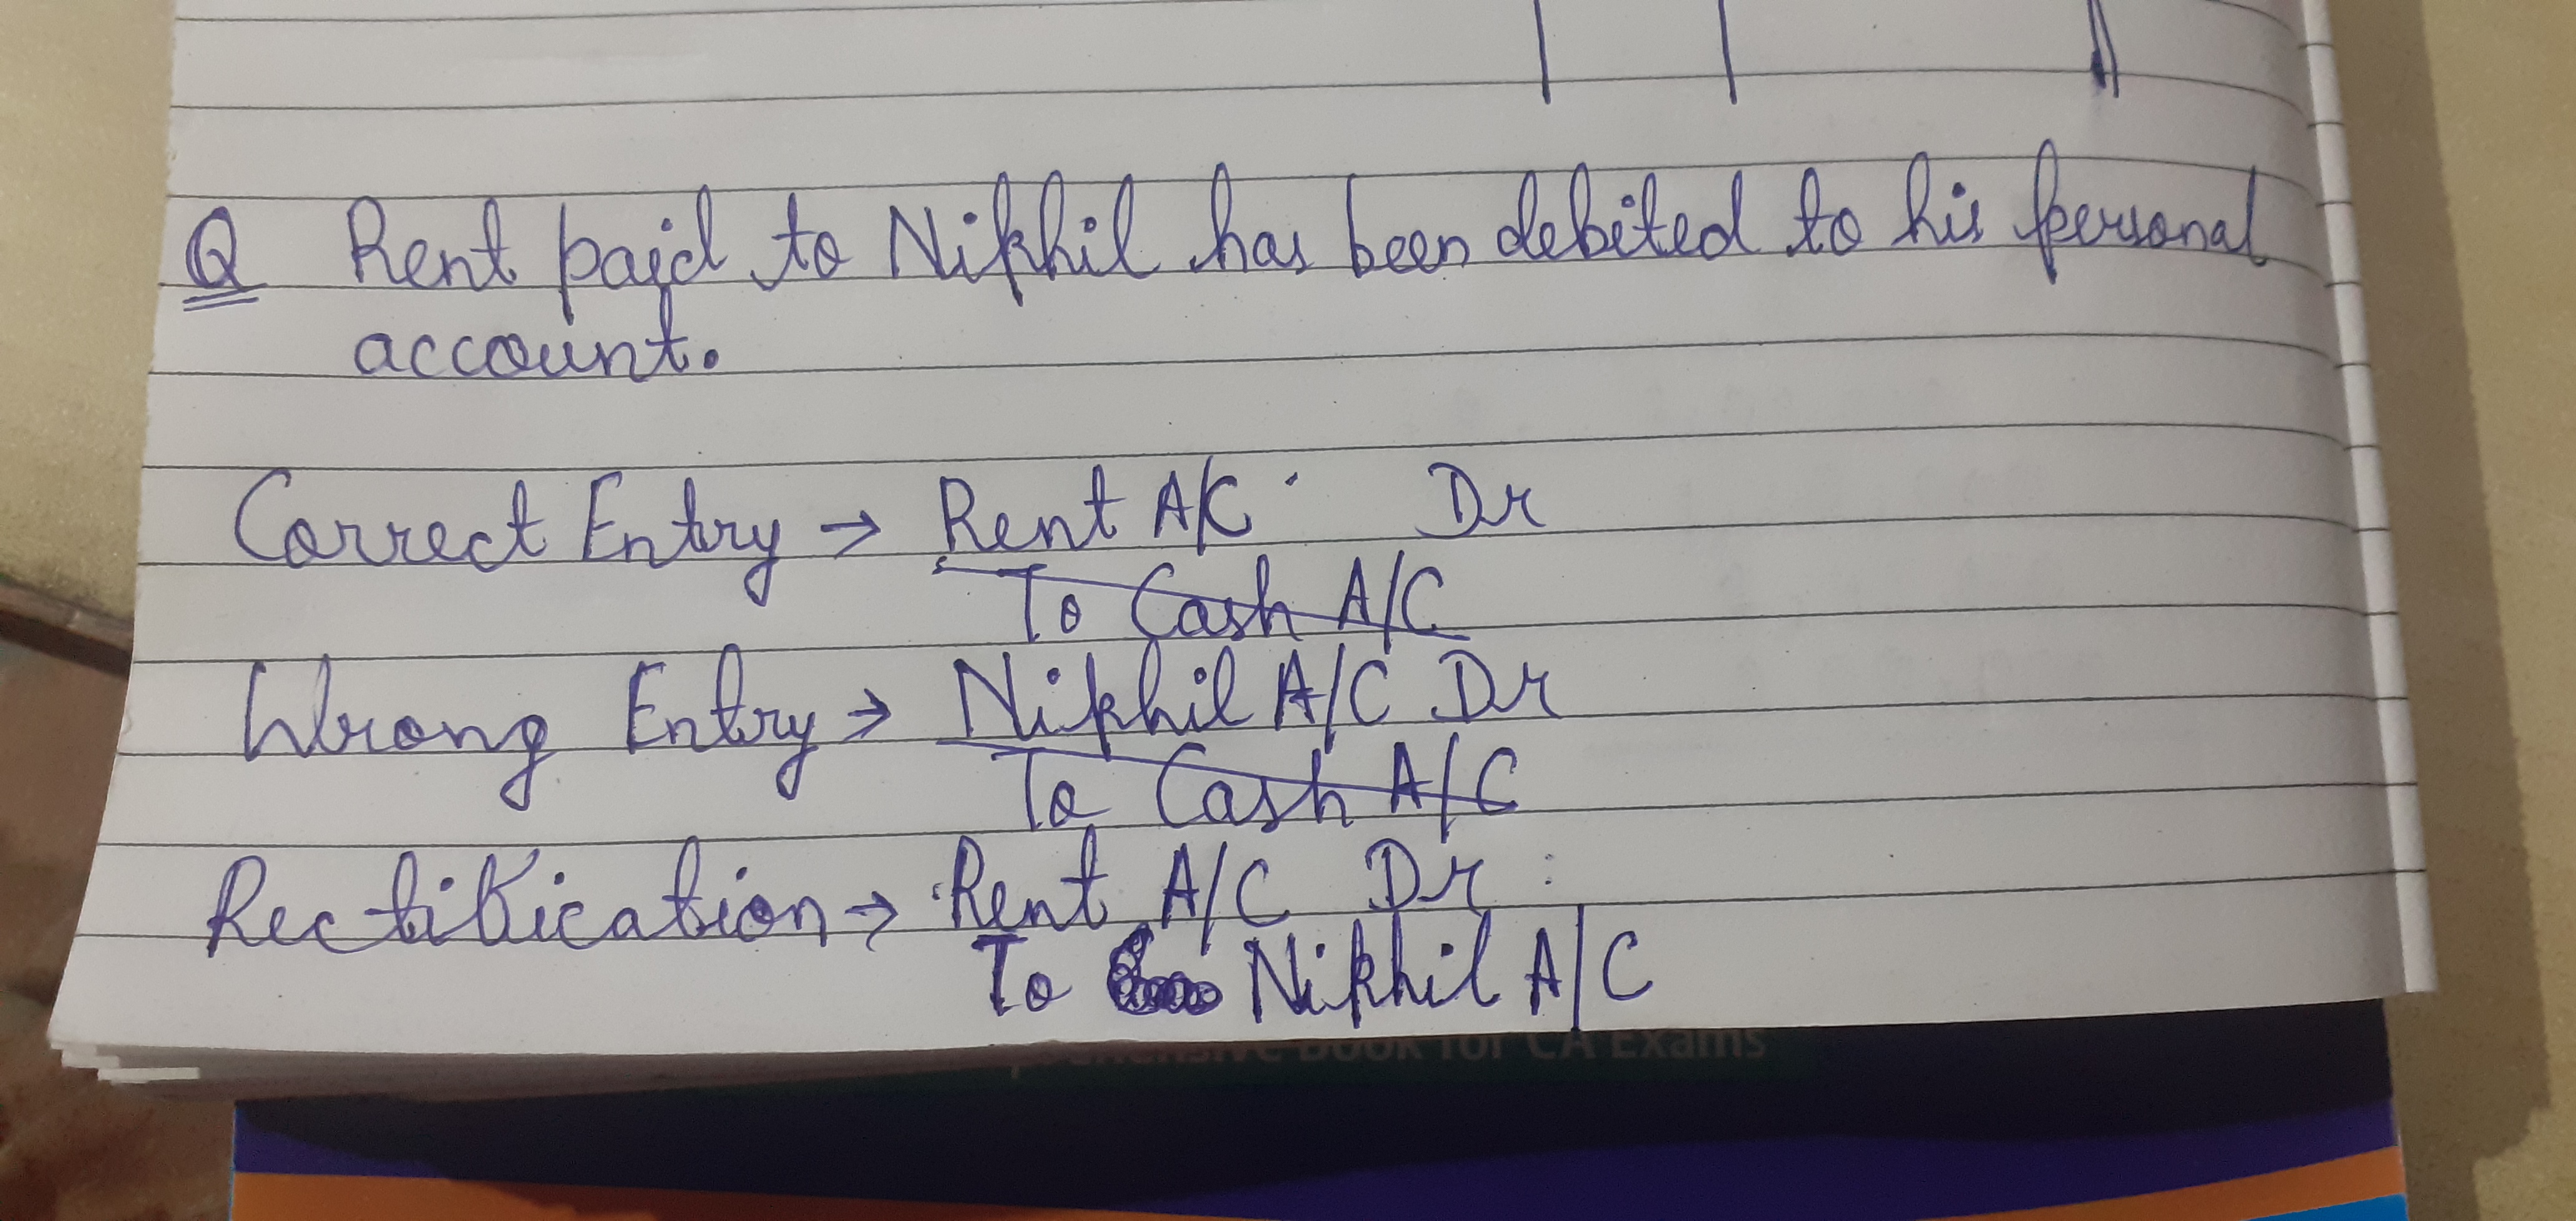 Q Rent paid to Nikhil has been debited to his personal
account.
Correct Entry → Rent A/C Dr
To Cash A/C
Wrong Entry → Nikhil A/C Dr
To Cash A/C
Rectification → Rent A/C Dr
To Nikhil A/C
Book for CA Exams